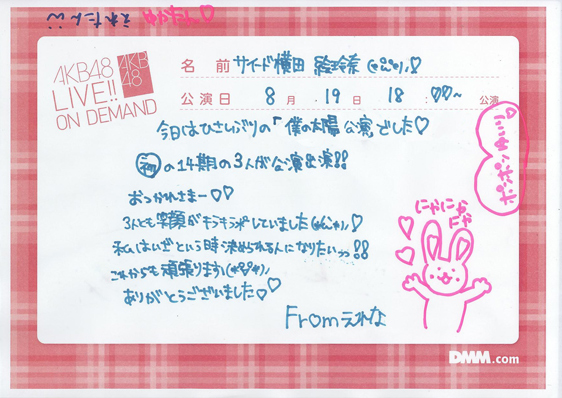 えれたん
ゆかたん♡
AKB48
LIVE!!
ON DEMAND
AKB
48
名前 サイード横田 絵玲奈
公演日 8月 19日 18:♡♡~ 公演
今日はひさしぶりの「僕の太陽」公演でした♡
の14期の3人が公演出演!!
おつかれさまー♡♡
3人とも笑顔がキラキラしていました
私はいざという時決められる人になりたいっ!!
これからも頑張ります
ありがとうございました♡♡
Fromえれな
にゃにゃ
にゃ
DMM.com